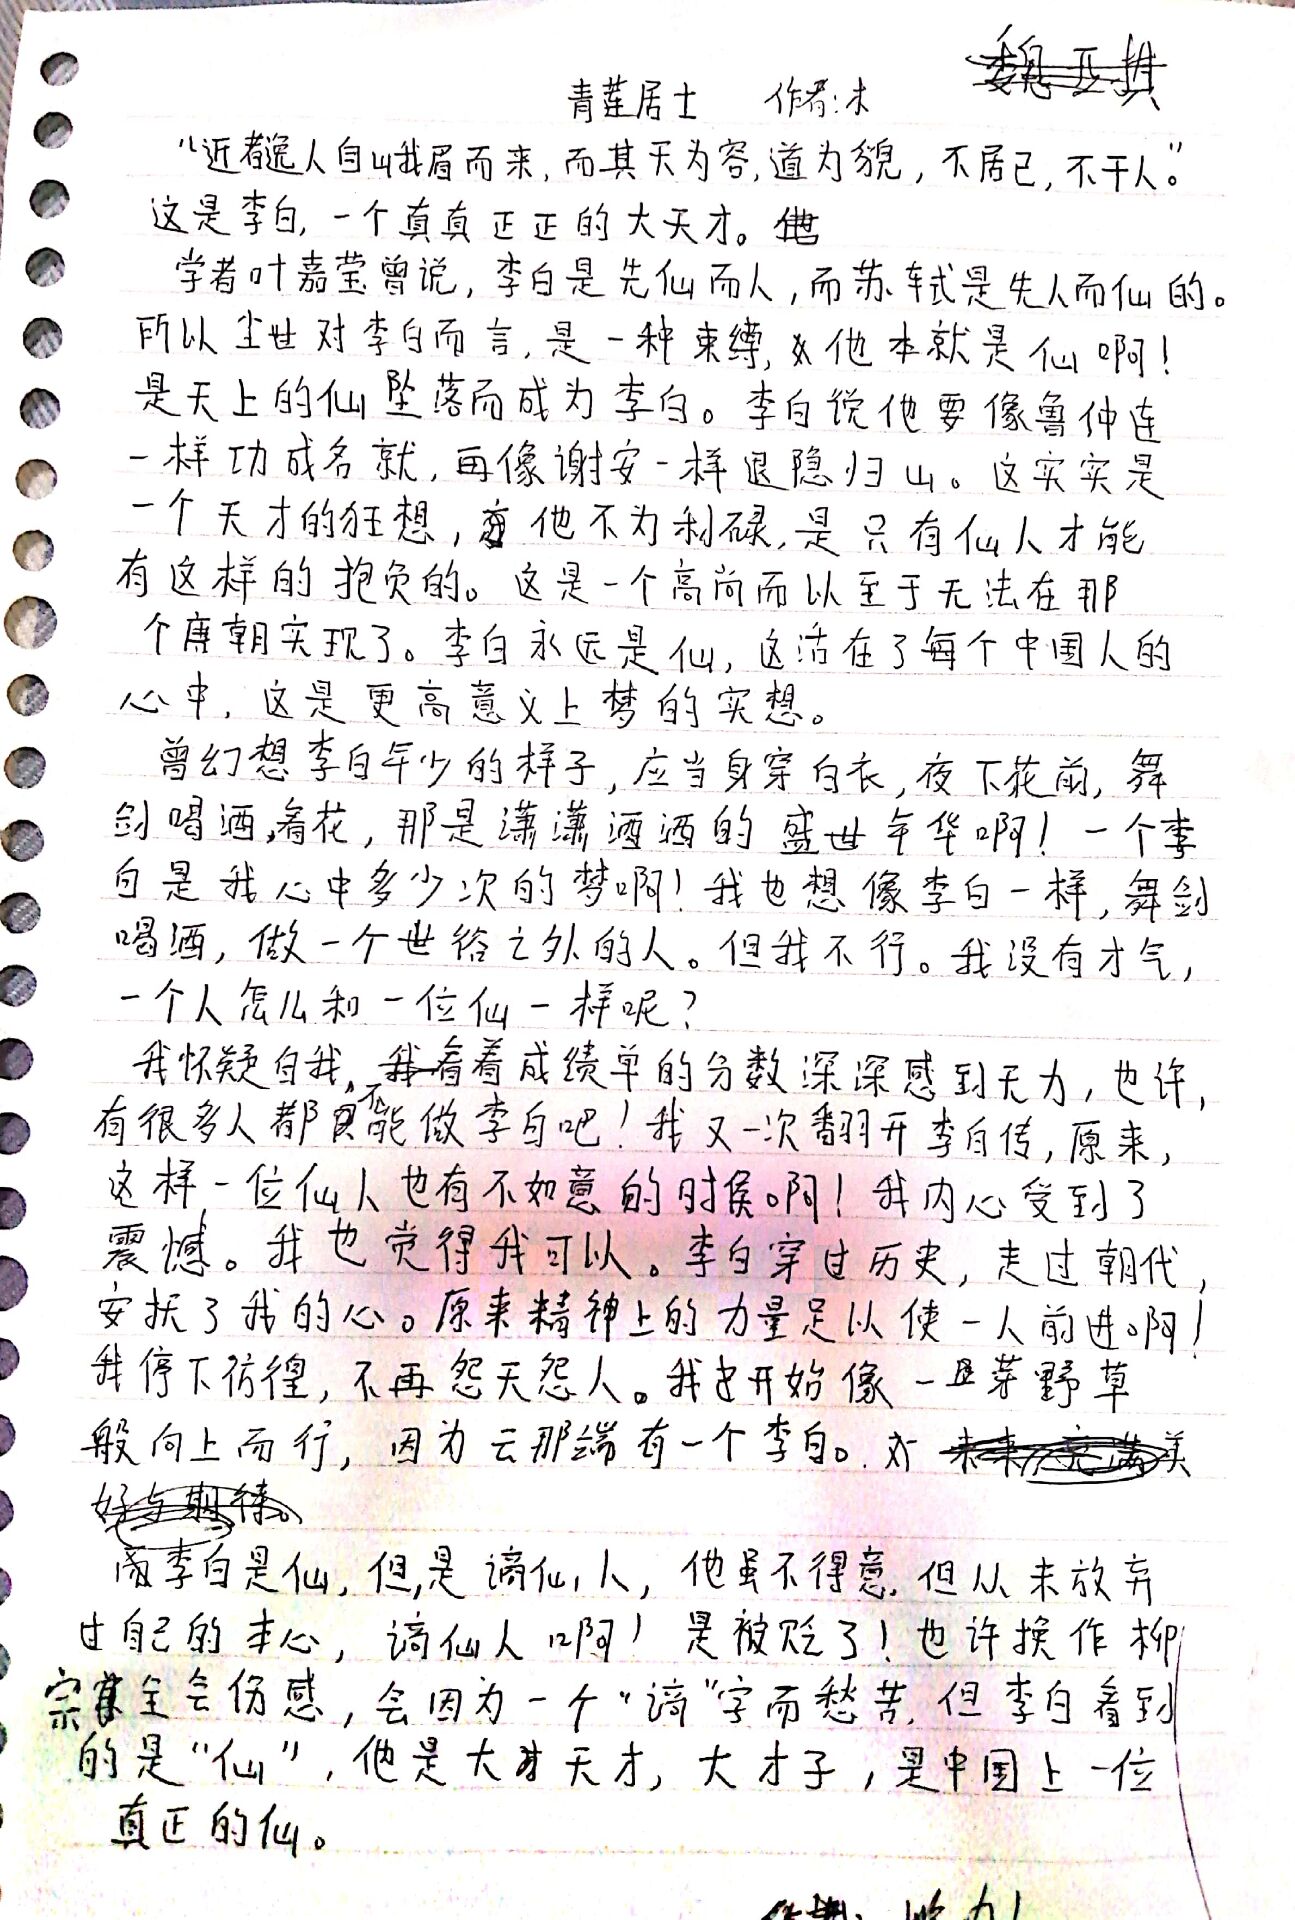 青莲居士 作者:木
“近者逸人自峨眉而来,而其天为容,道为貌,不居己,不干人。”
这是李白,一个真真正正的大天才。
学者叶嘉莹曾说,李白是先仙而人,而苏轼是先人而仙的。
所以尘世对李白而言,是一种束缚,他本就是仙啊!
是天上的仙坠落而成为李白。李白说他要像鲁仲连
一样功成名就,再像谢安一样退隐归山。这实实是
一个天才的狂想,他不为利碌,是只有仙人才能
有这样的抱负的。这是一个高尚而以至于无法在那
个唐朝实现了。李白永远是仙,这活在了每个中国人的
心中,这是更高意义上梦的实想。
曾幻想李白年少的样子,应当身穿白衣,夜下花前,舞
剑喝酒,看花,那是潇潇洒洒的盛世年华啊!一个李
白是我心中多少次的梦啊!我也想像李白一样,舞剑
喝酒,做一个世俗之外的人。但我不行。我没有才气,
一个人怎么和一位仙一样呢?
我怀疑自我,看着成绩单的分数深深感到无力,也许,
有很多人都不能做李白吧!我又一次翻开李白传,原来,
这样一位仙人也有不如意的时候啊!我内心受到了
震憾。我也觉得我可以。李白穿过历史,走过朝代,
安抚了我的心。原来精神上的力量足以使一人前进啊!
我停下彷徨,不再怨天怨人。我也开始像一芽野草
般向上而行,因为云那端有一个李白。
李白是仙,但,是谪仙人,他虽不得意,但从未放弃
过自己的本心,谪仙人啊!是被贬了!也许换作柳
宗会伤感,会因为一个“谪”字而愁苦,但李白看到
的是“仙”,他是大天才,大才子,是中国上一位
真正的仙。